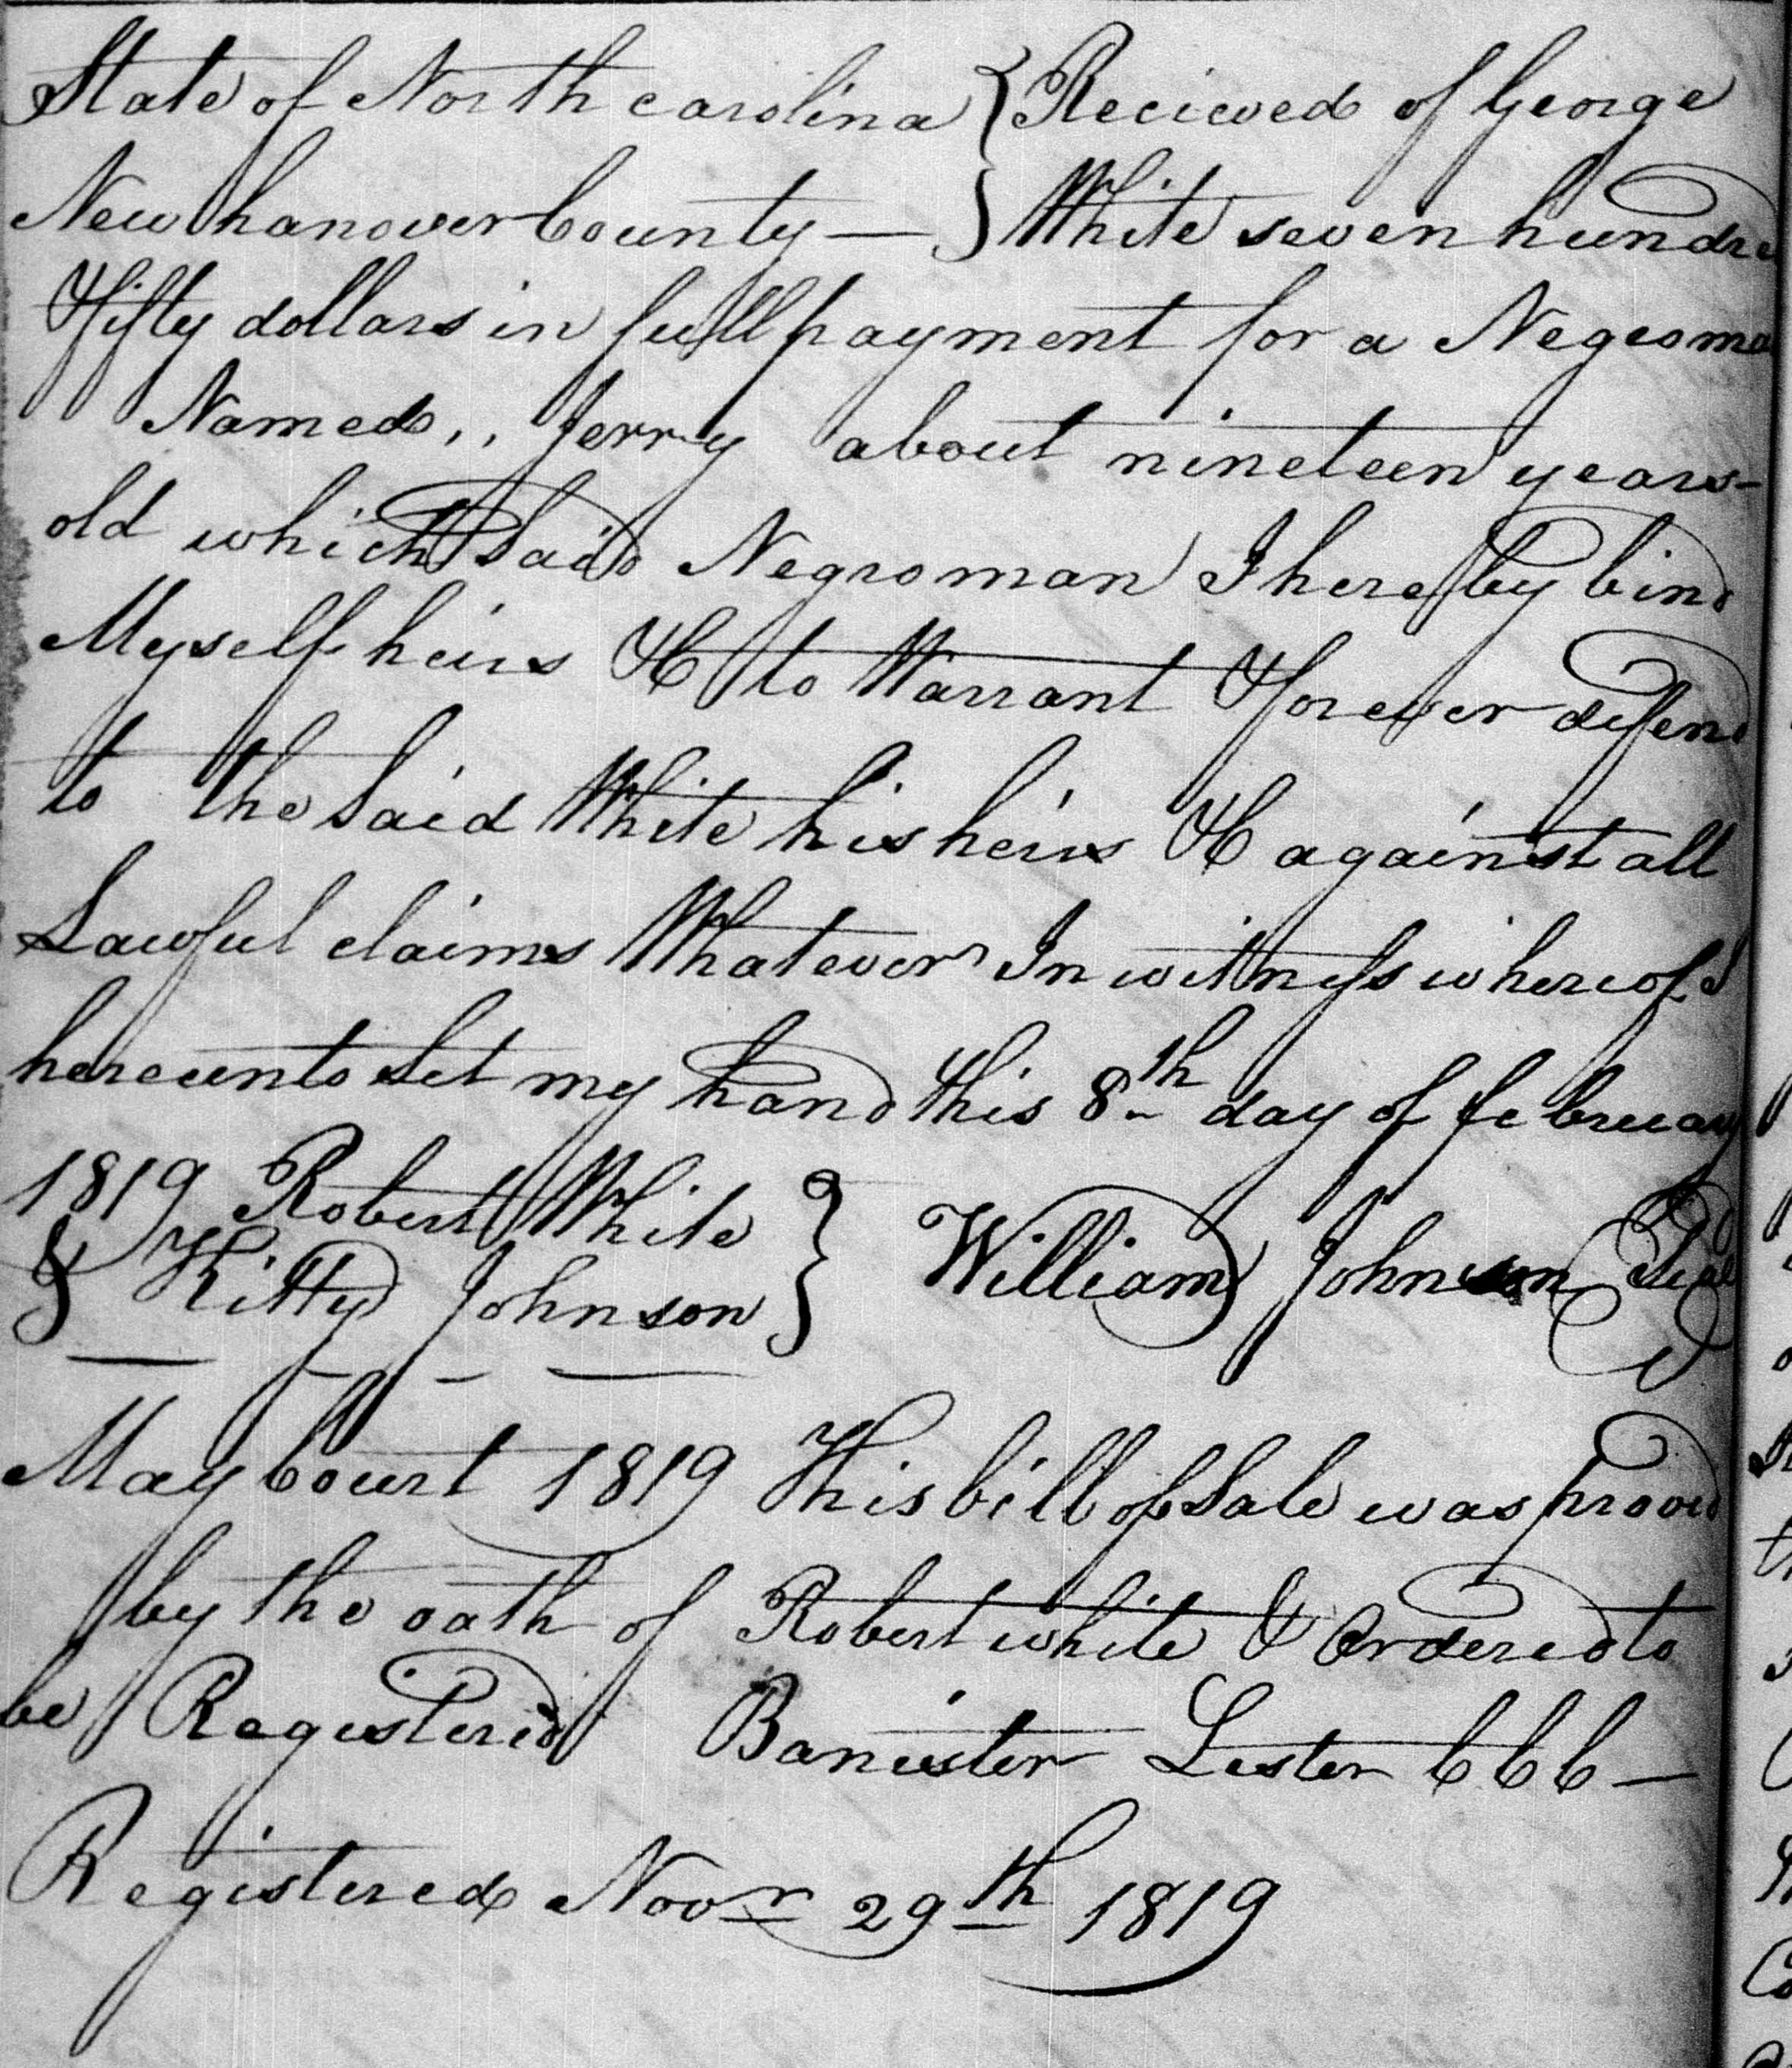 State of North carolina } Recieved of George
Newhanover County — } White seven hundre
Fifty dollars in full payment for a Negroma
Named,, Jerry about nineteen years-
old which said Negroman I hereby bind
Myself heirs &C to Warrant & forever defend
to the said White his heirs &C against all
Lawful claims Whatever In witness whereof I
hereunto set my hand this 8th day of february
1819 Robert White } William Johnson Seal
& Kitty Johnson }
May Court 1819 This bill of Sale was proved
by the oath of Robert white & Ordered to
be Registered Banister Lester CCC —
Registered Novr 29th 1819